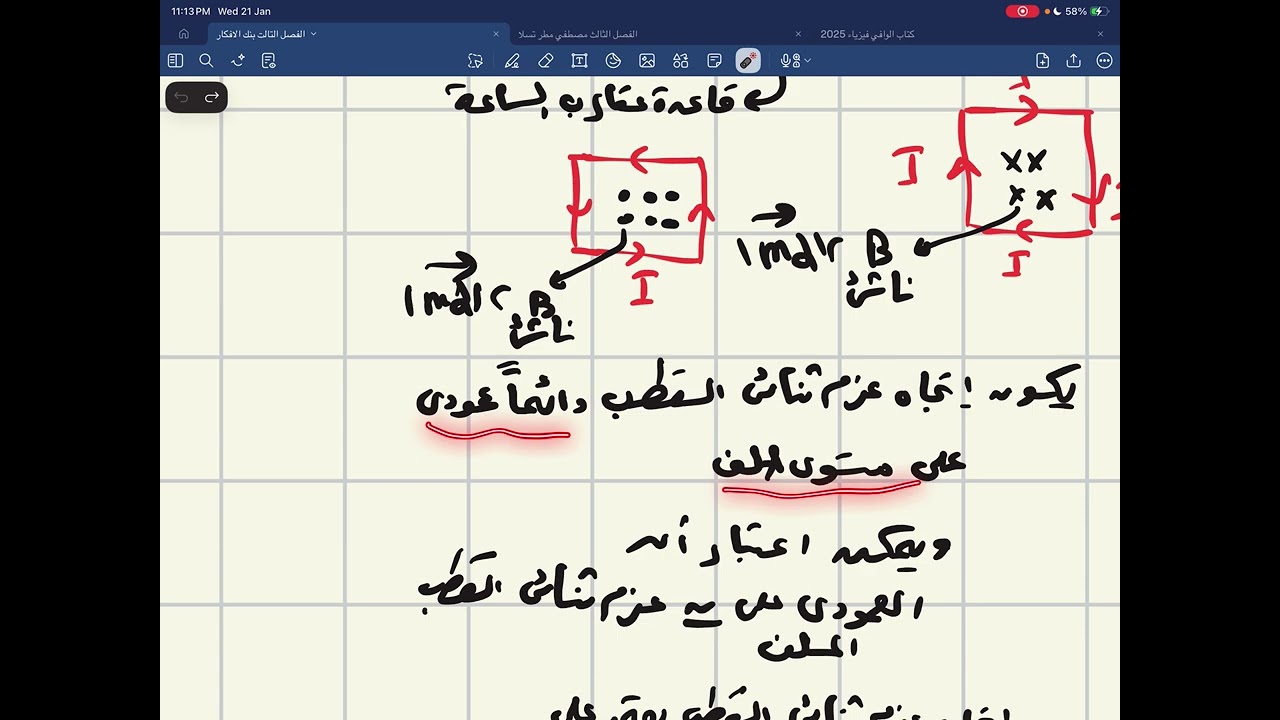 11:13 PM Wed 21 Jan
58%
الفصل التالت بنك الافكار
الفصل الثالث مصطفي مطر تسلا
كتاب الوافي فيزياء 2025
قاعدة عقارب الساعة
I
I
I
|md| B
ناشئ
|md| B
ناشئ
يكون اتجاه عزم ثنائى القطب دائماً عمودى
على مستوى الملف
ويمكن اعتبار أن
العمودى على = عزم ثنائى القطب
الملف
ثنائى القطب